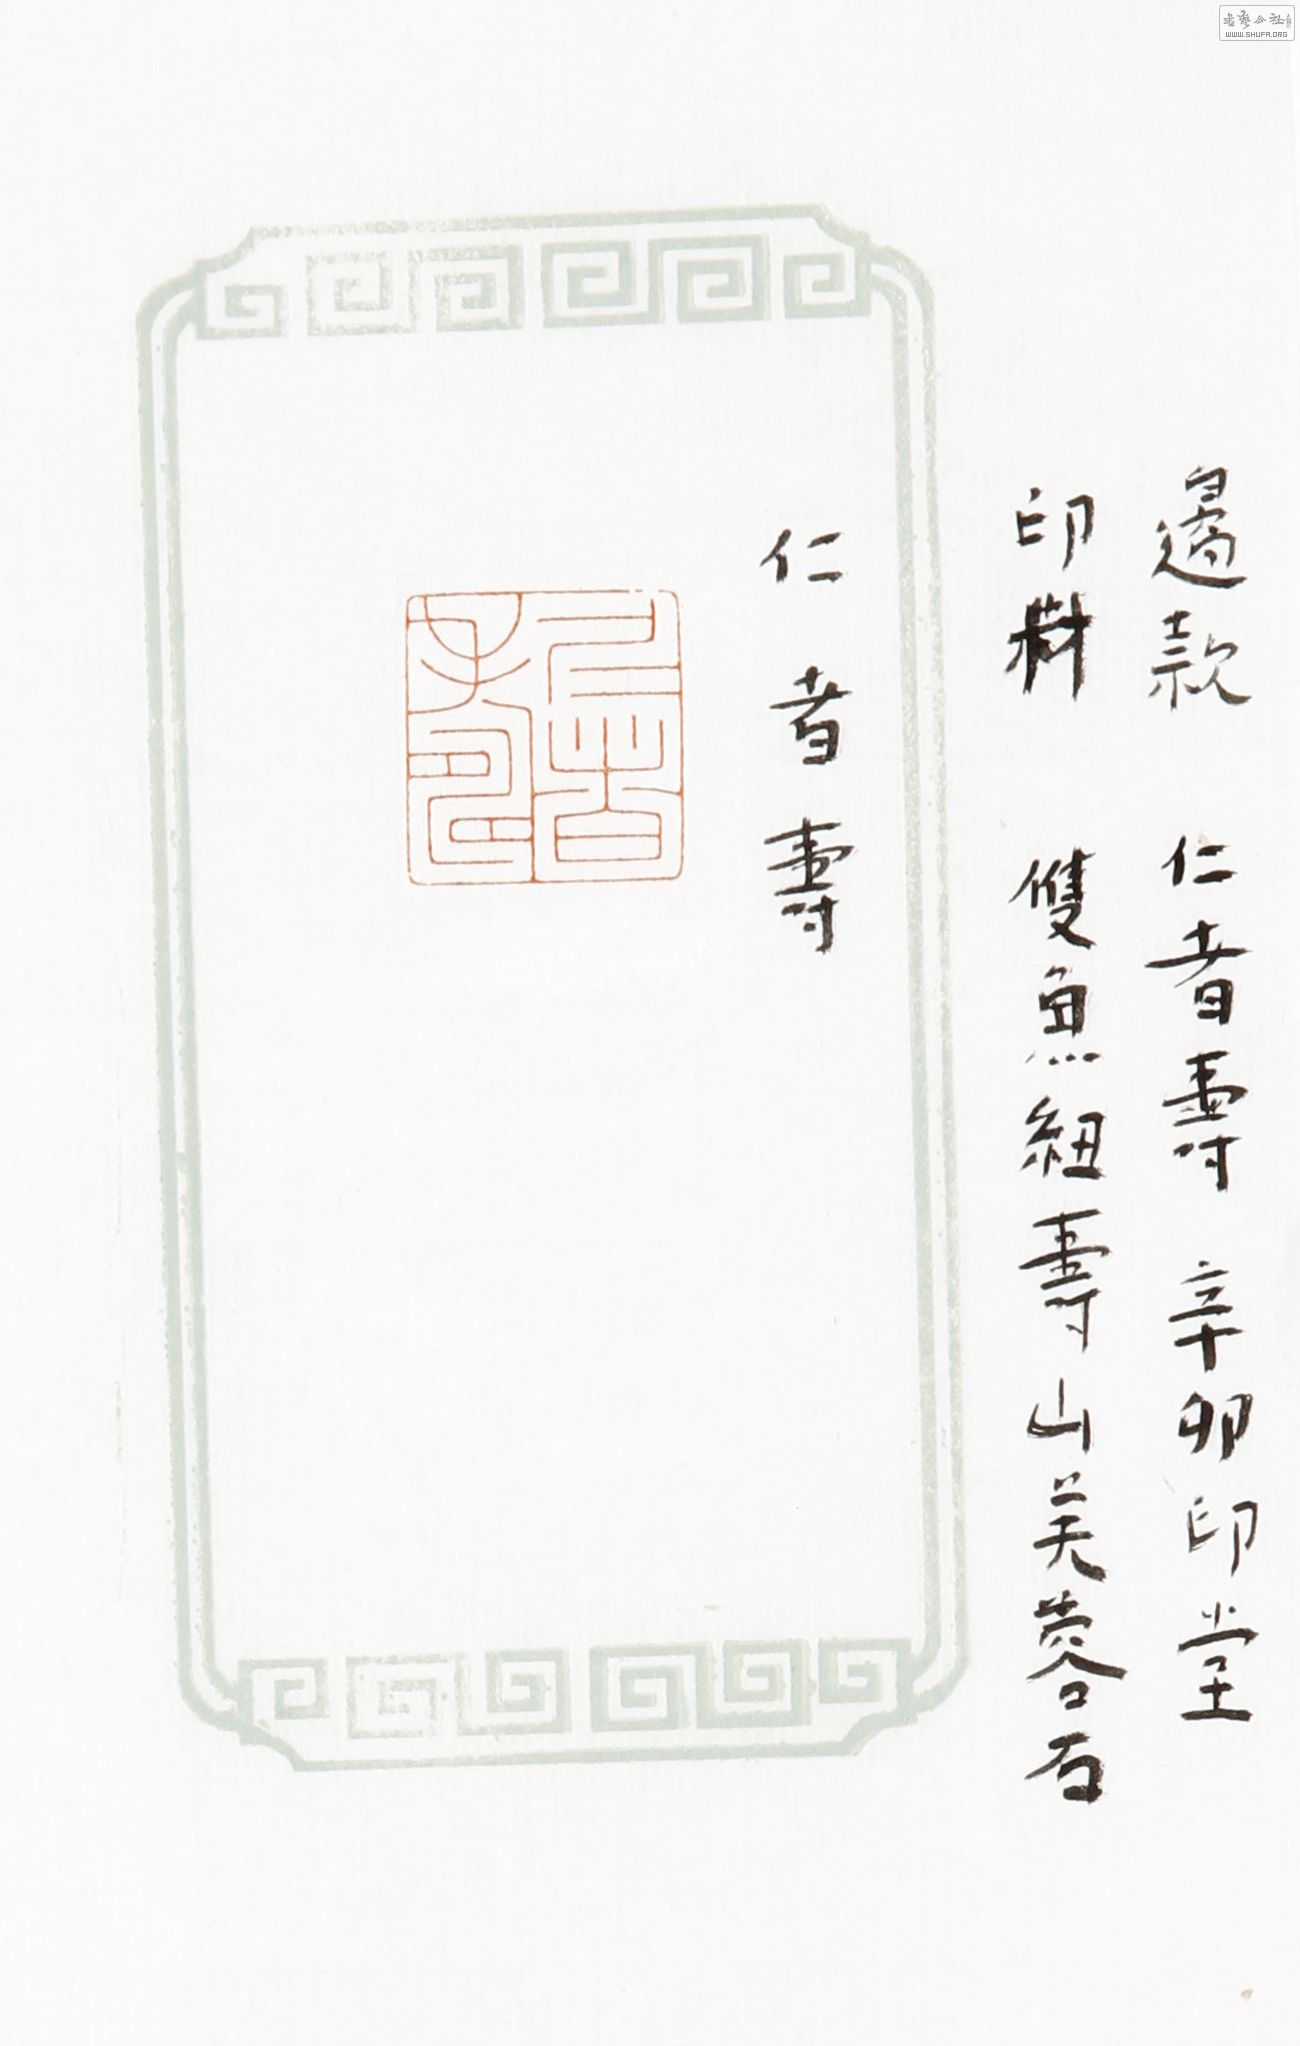 邊款　仁者壽　辛卯印堂
印材　雙魚紐壽山芙蓉石
仁者壽
仁者壽
書藝公社
WWW.SHUFA.ORG